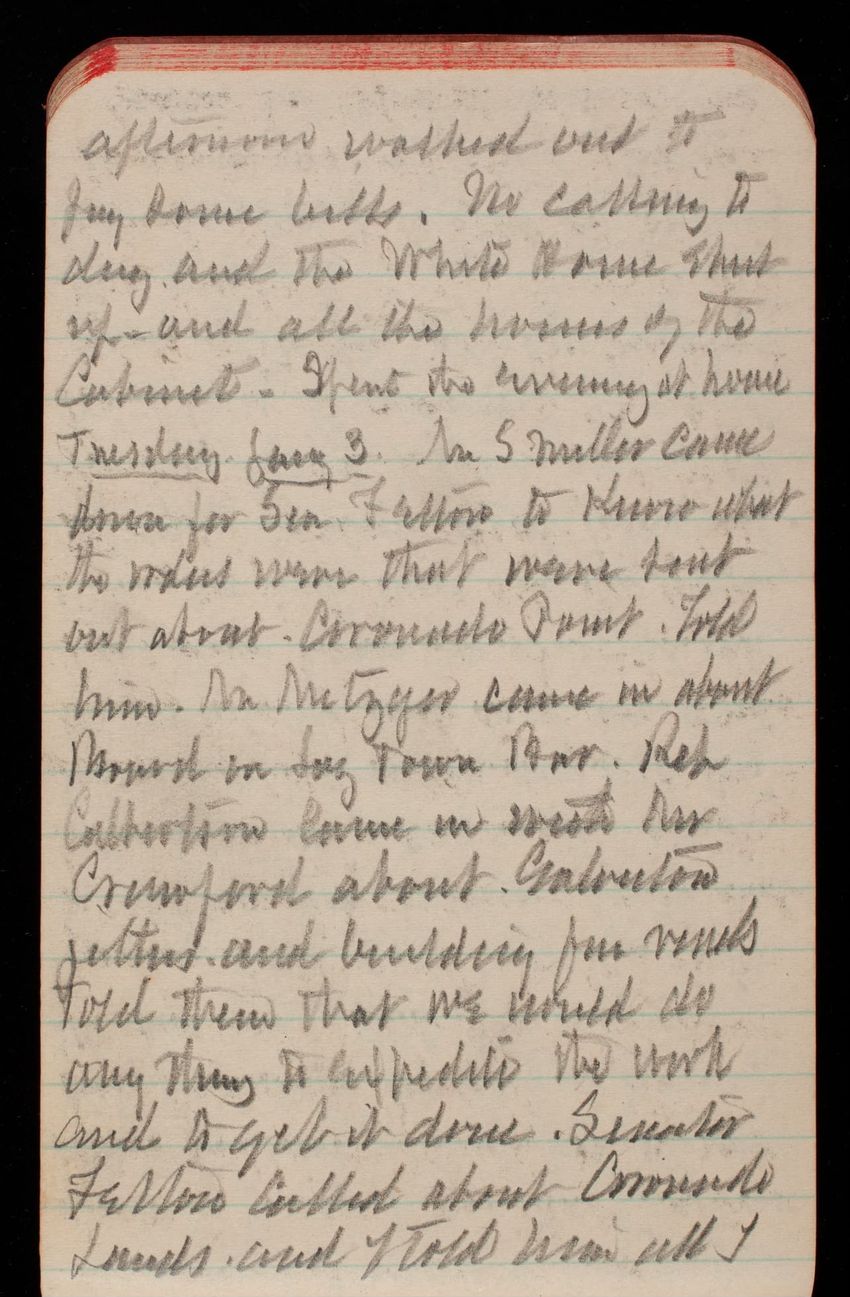 afternoon walked out to
pay some bills. No calling to
day and the White House shut
up - and all the houses of the
Cabinet - Spent the evening at home
Tuesday Jany 3. Mr S Miller came
down for Sen Felton to Know what
the were that were sent
out about Coronado Point. Told
him. Mr Metzger came in about
in Log Town Bar. Rep
Culberson came in with Mr
Crawford about Galveston
jetties and building
Told them that we would do
any thing to expedite the work
and to get it done. Senator
Felton called about Coronado
Lands and I told him all I